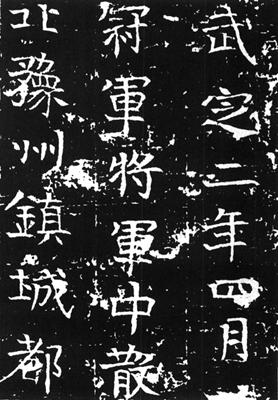 武定二年四月
冠軍將軍中散
北豫州鎮城都